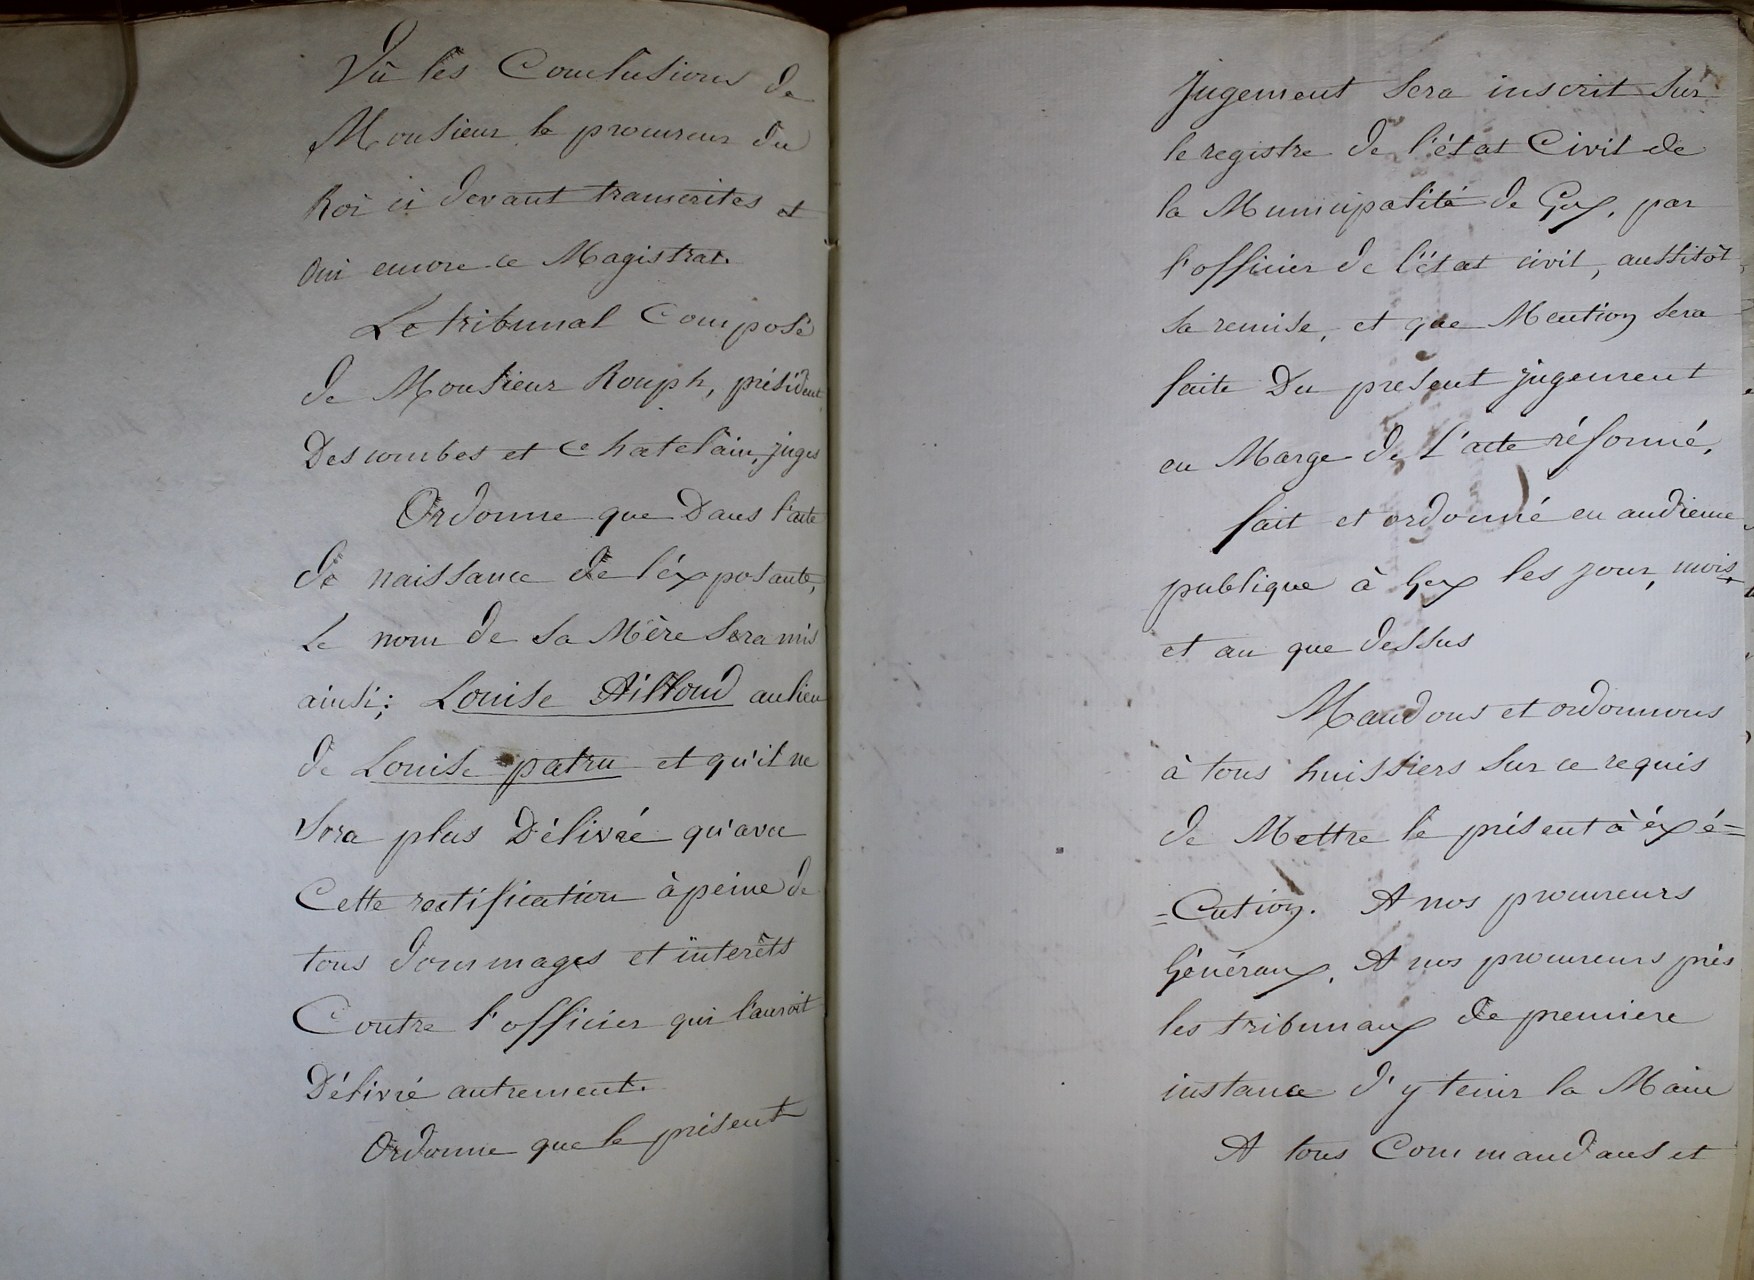 Vû les Conclusions de
Monsieur le procureur du
Roi ci devant transcrites et
oui encore ce Magistrat.
Le tribunal Composé
de Monsieur Rouph, président
Descombes et Chatelain, juges
Ordonne que Dans l'acte
de naissance de l'éxposante,
Le nom de sa Mère sera mis
ainsi; Louise Ailloud au lieu
de Louise patru et qu'il ne
sera plus Délivré qu'avec
Cette rectification à peine de
tous dommages et interêts
Contre l'officier qui l'auroit
Délivré autrement.
Ordonne que le présent
Jugement sera inscrit sur
le registre de l'état Civil de
la Municipalité de Gex, par
l'officier de l'état civil, aussitôt
sa remise, et que Mention sera
faite Du present jugement
en Marge de L'acte réformé,
fait et ordonné en audience
publique à Gex les jour, mois
et an que dessus
Mandons et ordonnons
à tous huissiers sur ce requis
de Mettre le présent à éxé=
=Cution. A nos procureurs
Généraux, A nos procureurs près
les tribunaux de premiere
instance d'y tenir la Main
A tous Commandans et